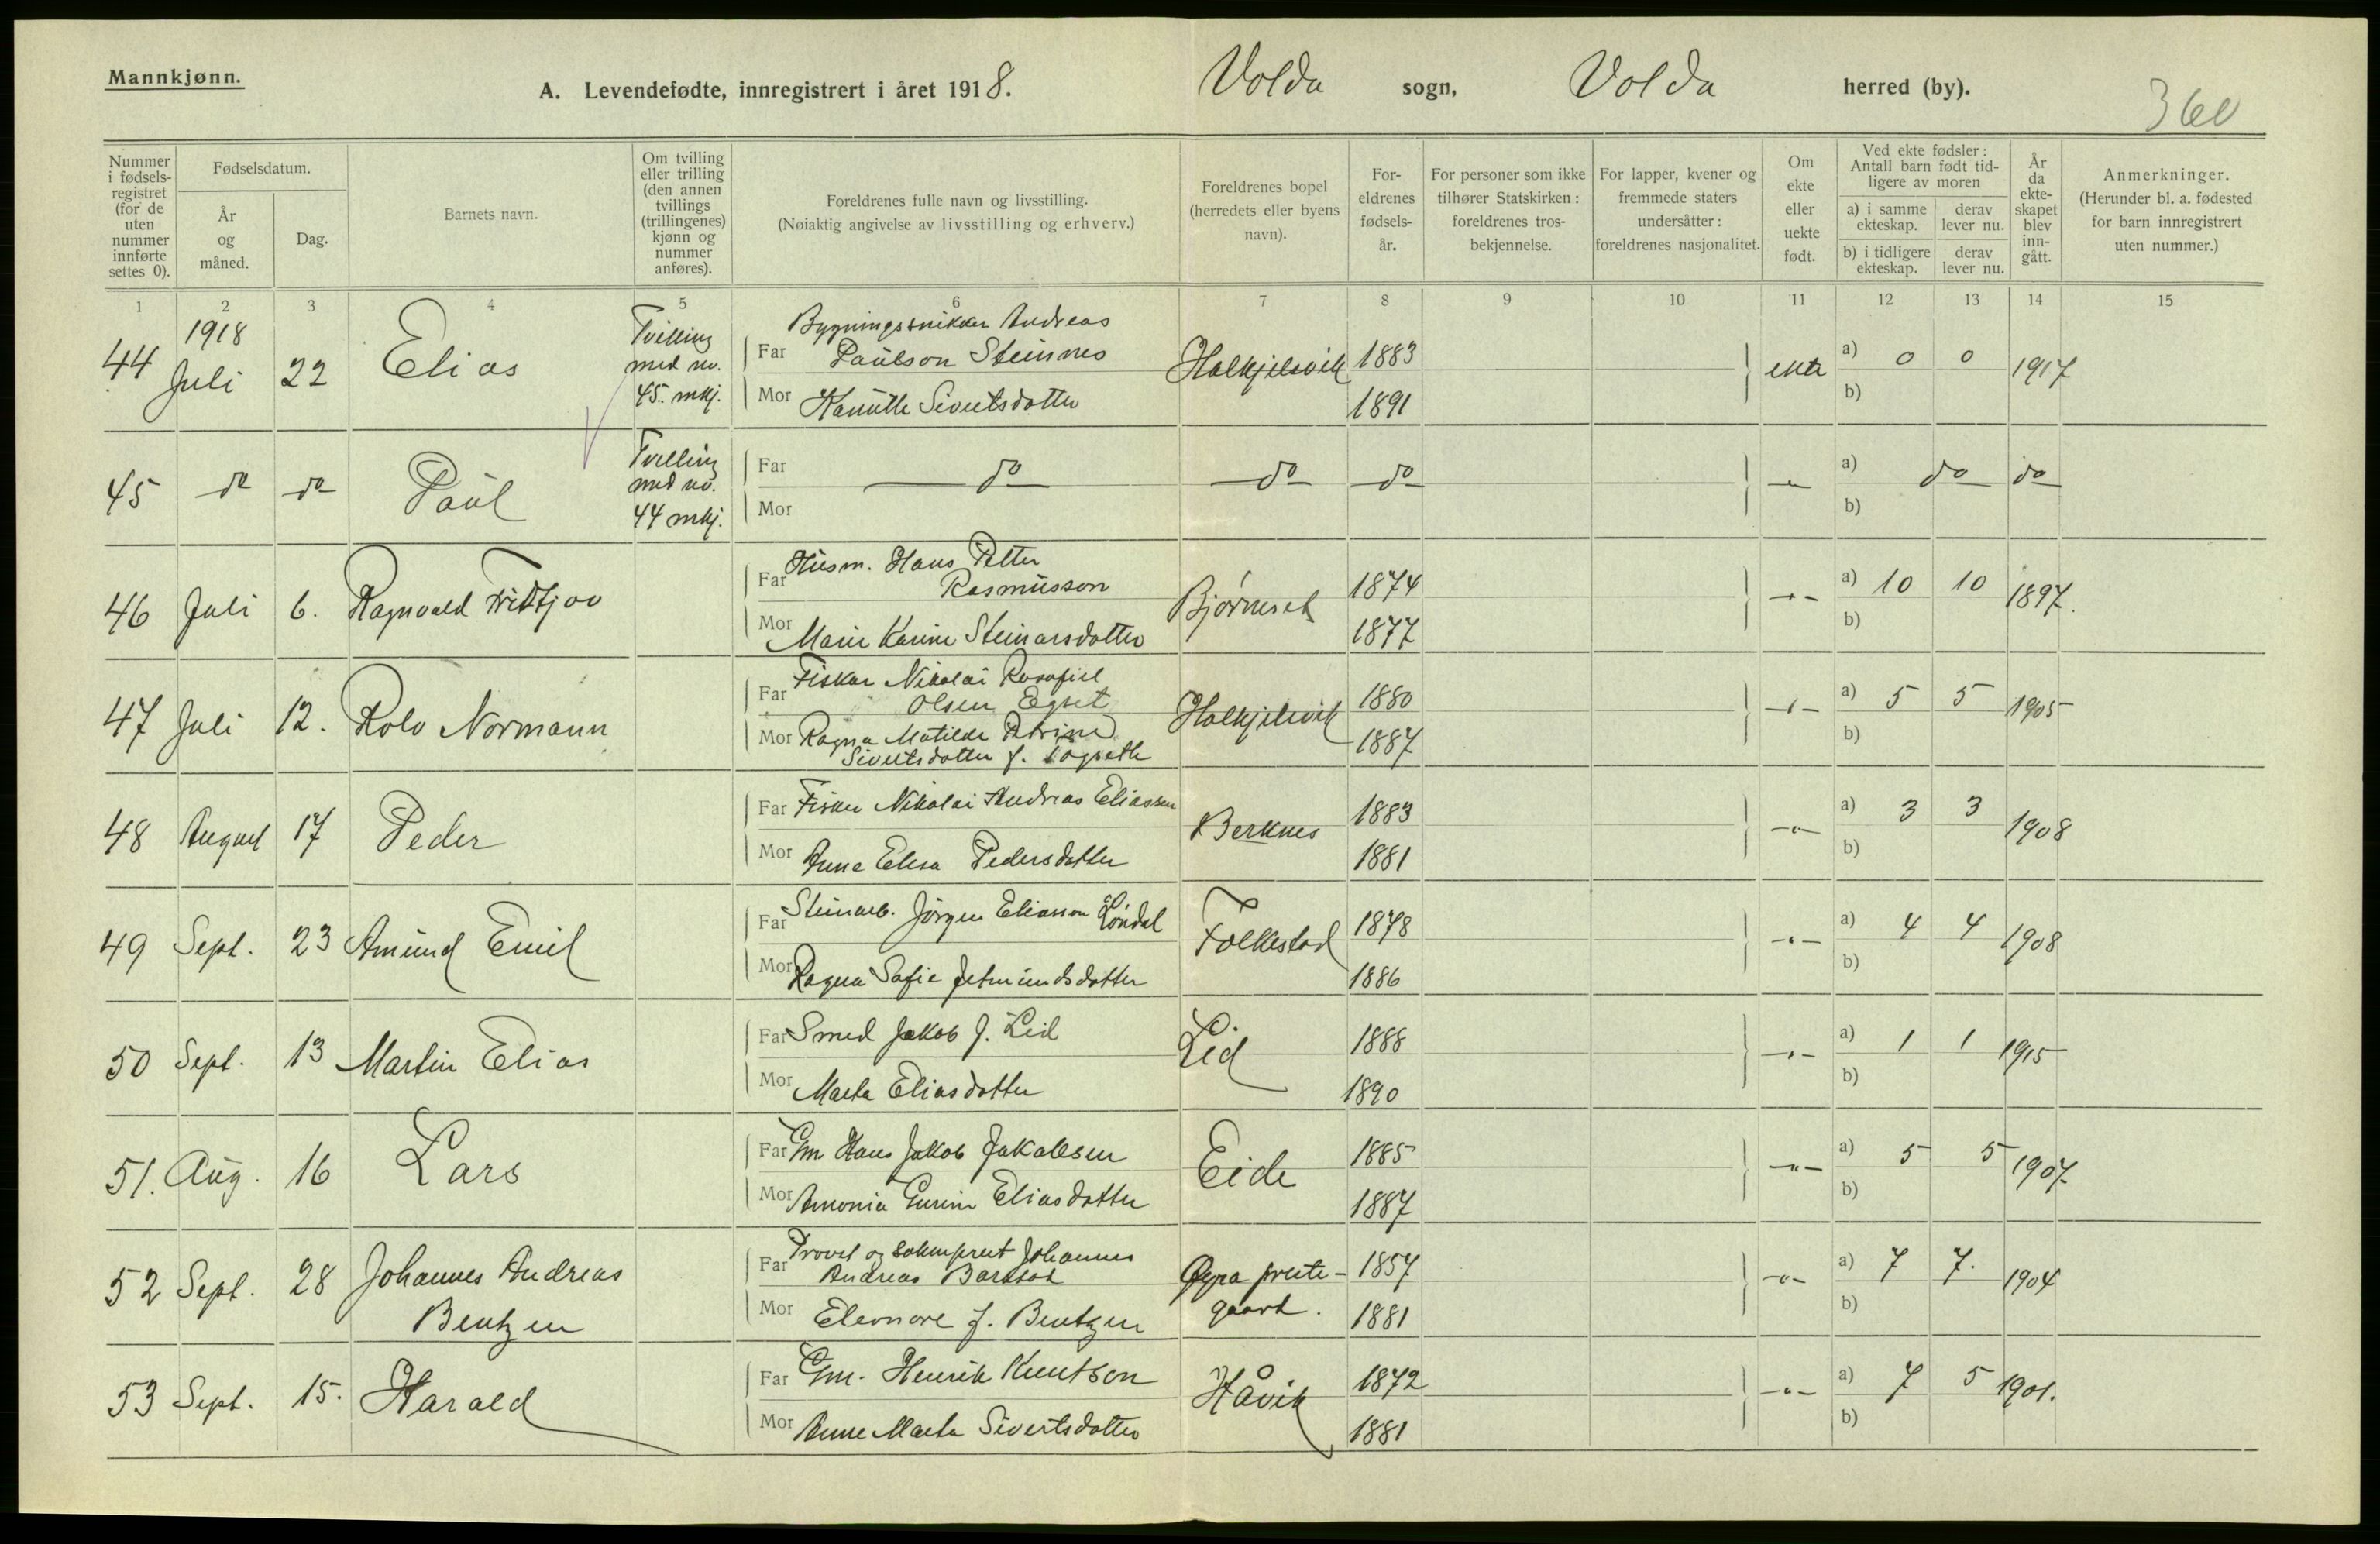 Mannkjønn.
A. Levendefødte, innregistrert i året 1918. Volda sogn, Volda herred (by).
360
Nummer i fødselsregistret (for de uten nummer innførte settes 0).
Fødselsdatum.
År og måned.
Dag.
Barnets navn.
Om tvilling eller trilling (den annen tvillings (trillingenes) kjønn og nummer anføres).
Foreldrenes fulle navn og livsstilling.
(Nøiaktig angivelse av livsstilling og erhverv.)
Foreldrenes bopel (herredets eller byens navn).
Foreldrenes fødselsår.
For personer som ikke tilhører Statskirken: foreldrenes trosbekjennelse.
For lapper, kvener og fremmede staters undersåtter: foreldrenes nasjonalitet.
Om ekte eller uekte født.
Ved ekte fødsler: Antall barn født tidligere av moren
a) i samme ekteskap. derav lever nu.
b) i tidligere ekteskap. derav lever nu.
År da ekteskapet blev inngått.
Anmerkninger.
(Herunder bl. a. fødested for barn innregistrert uten nummer.)
1 2 3 4 5 6 7 8 9 10 11 12 13 14 15
44 1918 Juli 22 Elias Tvilling med no. 45. mkj.
Far Bygningssnikker Andreas Paulson Steinnes Halkjelsvik 1883 ekte a) 0 0 1917
Mor Sivertsdotter 1891 b)
45 do do Paul Tvilling med no. 44 mkj.
Far do do do a) do do
Mor b)
46 Juli 6. Ragnvald Fridtjov
Far Husm. Hans Petter Rasmusson Bjørneset 1874 a) 10 10 1897.
Mor Marie Karine Steinarsdotter 1877 b)
47 Juli 12. Rolv Normann
Far Fisker Nikolai Olsen Egset Halkjelsvik 1880 a) 5 5 1905
Mor Ragna Matilde Petrine Sivertsdotter f. 1887 b)
48 August 17 Peder
Far Fisker Nikolai Andreas Eliassen Berknes 1883 a) 3 3 1908
Mor Anne Elisa Pedersdotter 1881 b)
49 Sept. 23 Amund Emil
Far Steinarb. Jørgen Eliasson Folkestad 1878 a) 4 4 1908
Mor Ragna Sofie Jetmundsdotter 1886 b)
50 Sept. 13 Martin Elias
Far Smed Jakob J. Lid Lid 1888 a) 1 1 1915
Mor Marta Eliasdotter 1890 b)
51. Aug. 16 Lars
Far Gm Hans Jakob Jakobsen Eide 1885 a) 5 5 1907
Mor Amonia Gurine Eliasdotter 1887 b)
52 Sept. 28 Johannes Andreas Bentzen
Far Provst og sokneprest Johannes Andreas Barstad Øyra prestegaard. 1857 a) 7 7. 1904
Mor Eleonore f. Bentzen 1881 b)
53 Sept. 15. Harald
Far Gm. Henrik Knutson Håvik 1872 a) 7 5 1901.
Mor Anne Marta Sivertsdotter 1881 b)